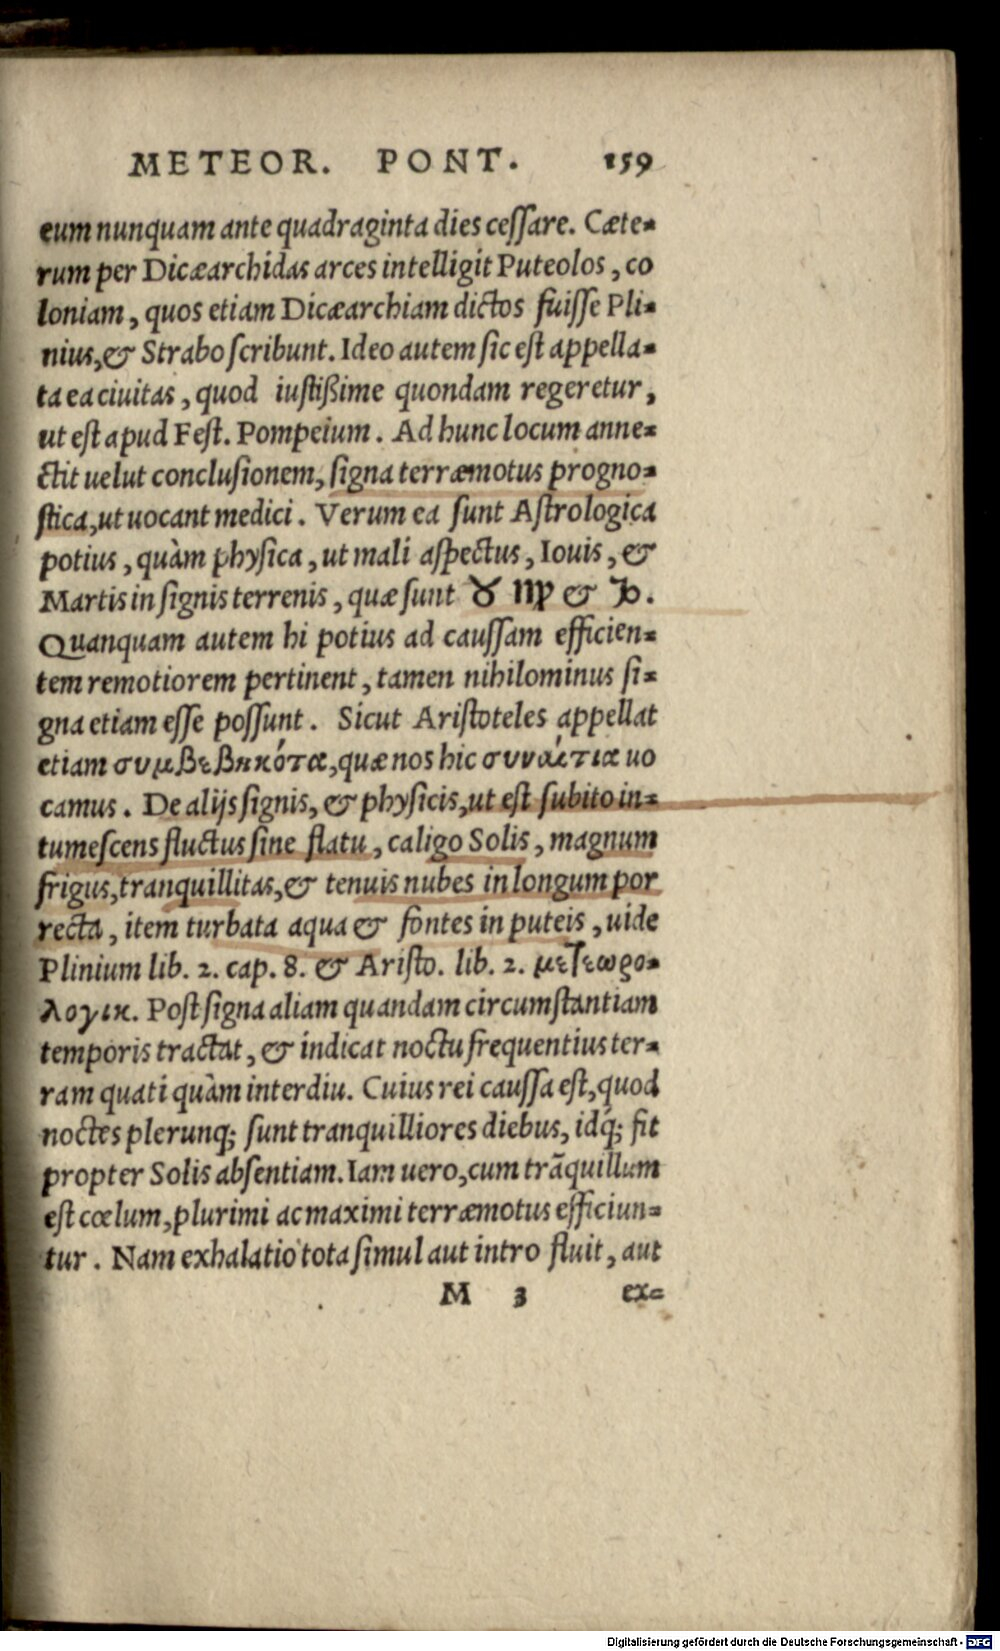 METEOR. PONT. 159
eum nunquam ante quadraginta dies ceſſare. Cæte-
rum per Dicæarchidas arces intelligit Puteolos, co
loniam, quos etiam Dicæarchiam dictos fuiſſe Pli-
nius, & Strabo ſcribunt. Ideo autem ſic eſt appella-
ta ea ciuitas, quod iuſtißime quondam regeretur,
ut eſt apud Feſt. Pompeium. Ad hunc locum anne-
ctit uelut concluſionem, ſigna terræmotus progno-
ſtica, ut uocant medici. Verum ea ſunt Aſtrologica
potius, quàm phyſica, ut mali aſpectus, Iouis, &
Martis in ſignis terrenis, quæ ſunt ♉ ♍ & ♑.
Quanquam autem hi potius ad cauſſam efficien-
tem remotiorem pertinent, tamen nihilominus ſi-
gna etiam eſſe poſſunt. Sicut Ariſtoteles appellat
etiam συμβεβηκότα, quæ nos hic συναίτια uo
camus. De alijs ſignis, & phyſicis, ut eſt ſubito in-
tumeſcens fluctus ſine flatu, caligo Solis, magnum
frigus, tranquillitas, & tenuis nubes in longum por
recta, item turbata aqua & fontes in puteis, uide
Plinium lib. 2. cap. 8. & Ariſto. lib. 2. μετεωρο-
λογικ. Poſt ſigna aliam quandam circumſtantiam
temporis tractat, & indicat noctu frequentius ter-
ram quati quàm interdiu. Cuius rei cauſſa eſt, quod
noctes plerunq; ſunt tranquilliores diebus, idq́; fit
propter Solis abſentiam. Iam uero, cum trãquillum
eſt cœlum, plurimi ac maximi terræmotus efficiun-
tur. Nam exhalatio tota ſimul aut intro fluit, aut
M 3 ex-
Digitalisierung gefördert durch die Deutsche Forschungsgemeinschaft - DFG